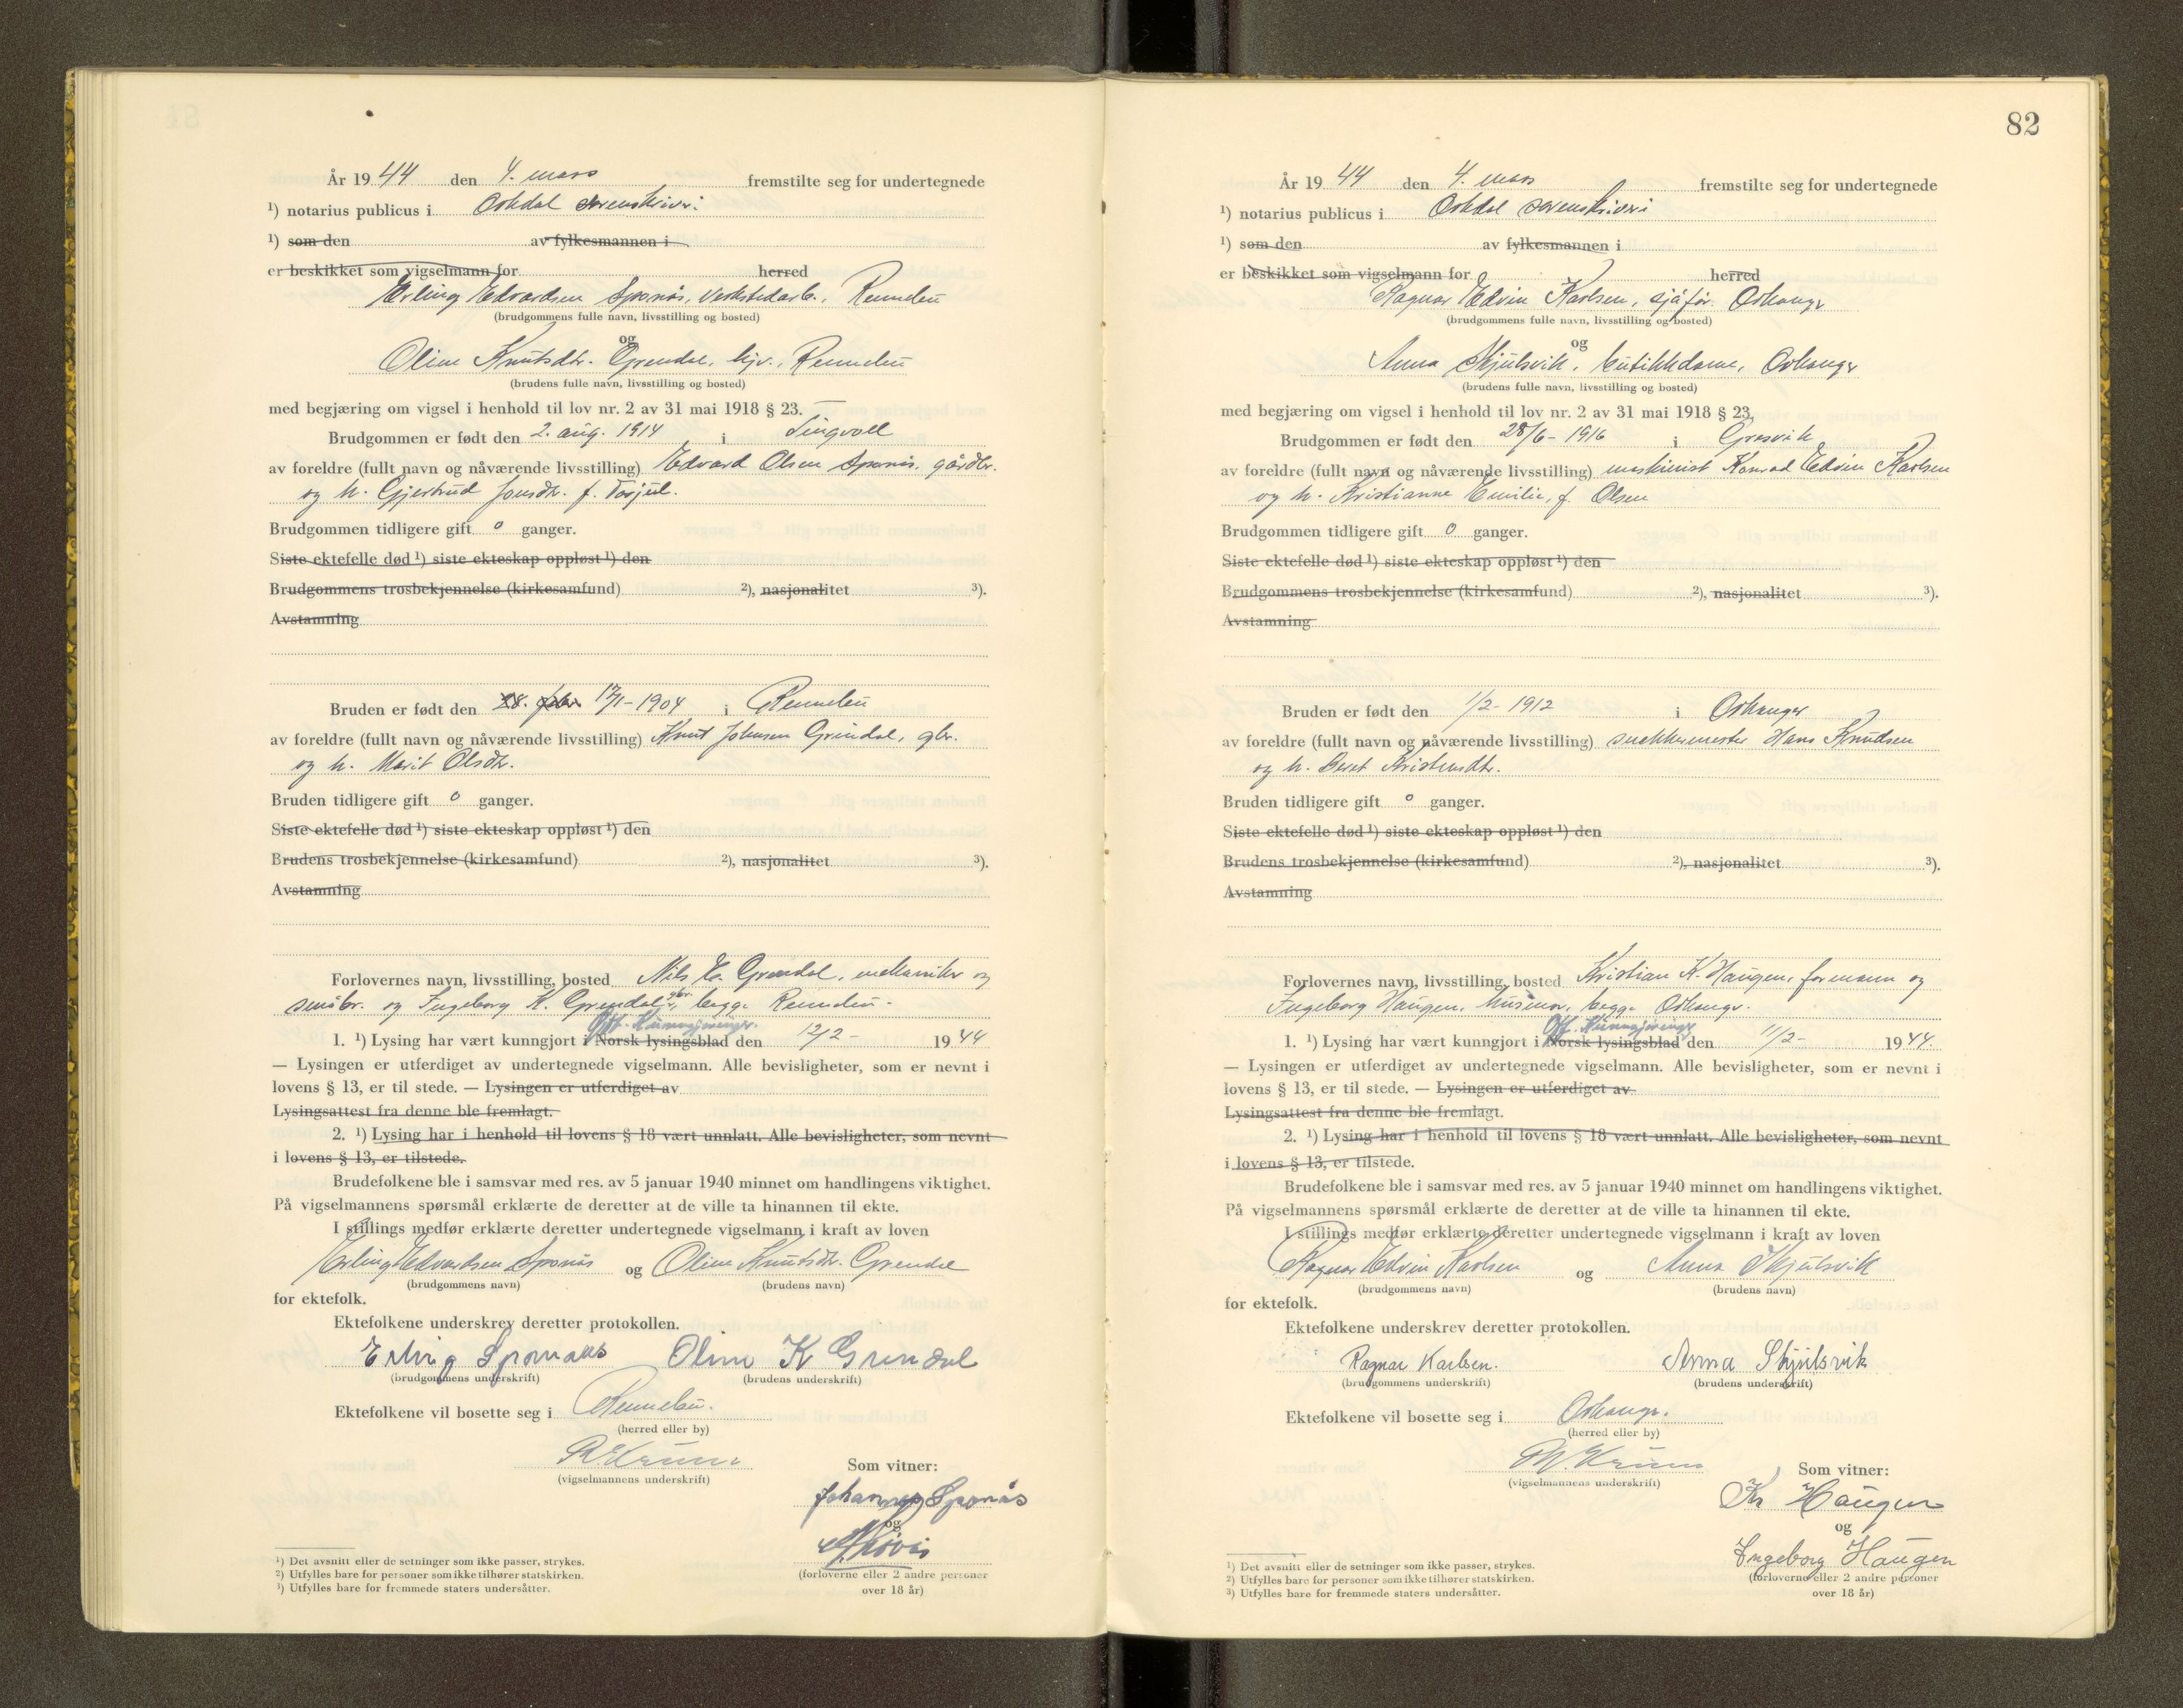 År 1944 den 4. mars fremstilte seg for undertegnede
¹) notarius publicus i Orkdal sorenskriveri
¹) som den av fylkesmannen i
er beskikket som vigselmann for herred
Erling Edvardsen Sponås, verkstedarb., Rennebu
(brudgommens fulle navn, livsstilling og bosted)
og
Oline Knutsdtr. Grendal, hjv., Rennebu
(brudens fulle navn, livsstilling og bosted)
med begjæring om vigsel i henhold til lov nr. 2 av 31 mai 1918 § 23.
Brudgommen er født den 2. aug. 1914 i Tingvoll
av foreldre (fullt navn og nåværende livsstilling) Edvard Olsen Sponås, gårdbr.
og h. Gjertrud Jonsdtr. f. Torjul.
Brudgommen tidligere gift 0 ganger.
Siste ektefelle død ¹) siste ekteskap oppløst ¹) den
Brudgommens trosbekjennelse (kirkesamfund) ²), nasjonalitet ³).
Avstamning
Bruden er født den 28. febr. 17/1-1904 i Rennebu
av foreldre (fullt navn og nåværende livsstilling) Knut Johnsen Grindal, gbr.
og h. Marit Olsdtr.
Bruden tidligere gift 0 ganger.
Siste ektefelle død ¹) siste ekteskap oppløst ¹) den
Brudens trosbekjennelse (kirkesamfund) ²), nasjonalitet ³).
Avstamning
Forlovernes navn, livsstilling, bosted Nils E. Grendal, mekaniker og
småbr. og Ingeborg K. Grendal, gbr. begge Rennebu.
Off. Kunngjøringer.
1. ¹) Lysing har vært kunngjort i Norsk lysingsblad den 12/2- 1944
— Lysingen er utferdiget av undertegnede vigselmann. Alle bevisligheter, som er nevnt i
lovens § 13, er til stede. — Lysingen er utferdiget av
Lysingsattest fra denne ble fremlagt.
2. ¹) Lysing har i henhold til lovens § 18 vært unnlatt. Alle bevisligheter, som nevnt
i lovens § 13, er tilstede.
Brudefolkene ble i samsvar med res. av 5 januar 1940 minnet om handlingens viktighet.
På vigselmannens spørsmål erklærte de deretter at de ville ta hinannen til ekte.
I stillings medfør erklærte deretter undertegnede vigselmann i kraft av loven
Erling Edvardsen Sponås og Oline Knutsdtr. Grendal
(brudgommens navn) (brudens navn)
for ektefolk.
Ektefolkene underskrev deretter protokollen.
Erling Sponaas Oline K Grendal
(brudgommens underskrift) (brudens underskrift)
Ektefolkene vil bosette seg i Rennebu.
(herred eller by)
(vigselmannens underskrift)
Som vitner:
Johannes Sponås
og
(forloverne eller 2 andre personer
over 18 år)
¹) Det avsnitt eller de setninger som ikke passer, strykes.
²) Utfylles bare for personer som ikke tilhører statskirken.
³) Utfylles bare for fremmede staters undersåtter.
82
År 1944 den 4. mars fremstilte seg for undertegnede
¹) notarius publicus i Orkdal sorenskriveri
¹) som den av fylkesmannen i
er beskikket som vigselmann for herred
Ragnar Edvin Karlsen, sjåfør. Orkanger
(brudgommens fulle navn, livsstilling og bosted)
og
Anna Skjulsvik, butikkdame, Orkanger
(brudens fulle navn, livsstilling og bosted)
med begjæring om vigsel i henhold til lov nr. 2 av 31 mai 1918 § 23.
Brudgommen er født den 28/6-1916 i Gresvik
av foreldre (fullt navn og nåværende livsstilling) maskinist Konrad Edvin Karlsen
og h. Kristianne Emilie, f. Olsen
Brudgommen tidligere gift 0 ganger.
Siste ektefelle død ¹) siste ekteskap oppløst ¹) den
Brudgommens trosbekjennelse (kirkesamfund) ²), nasjonalitet ³).
Avstamning
Bruden er født den 1/2-1912 i Orkanger
av foreldre (fullt navn og nåværende livsstilling) snekkermester Hans Knudsen
og h. Beret Kristensdtr.
Bruden tidligere gift 0 ganger.
Siste ektefelle død ¹) siste ekteskap oppløst ¹) den
Brudens trosbekjennelse (kirkesamfund) ²), nasjonalitet ³).
Avstamning
Forlovernes navn, livsstilling, bosted Kristian K. Haugen, formann og
Ingeborg Haugen, husmor, begge Orkanger.
Off. Kunngjøringer
1. ¹) Lysing har vært kunngjort i Norsk lysingsblad den 11/2- 1944.
— Lysingen er utferdiget av undertegnede vigselmann. Alle bevisligheter, som er nevnt i
lovens § 13, er til stede. — Lysingen er utferdiget av
Lysingsattest fra denne ble fremlagt.
2. ¹) Lysing har i henhold til lovens § 18 vært unnlatt. Alle bevisligheter, som nevnt
i lovens § 13, er tilstede.
Brudefolkene ble i samsvar med res. av 5 januar 1940 minnet om handlingens viktighet.
På vigselmannens spørsmål erklærte de deretter at de ville ta hinannen til ekte.
I stillings medfør erklærte deretter undertegnede vigselmann i kraft av loven
Ragnar Edvin Karlsen og Anna Skjulsvik
(brudgommens navn) (brudens navn)
for ektefolk.
Ektefolkene underskrev deretter protokollen.
Ragnar Karlsen. Anna Skjulsvik
(brudgommens underskrift) (brudens underskrift)
Ektefolkene vil bosette seg i Orkanger.
(herred eller by)
(vigselmannens underskrift)
Som vitner:
Kr Haugen
og
Ingeborg Haugen
(forloverne eller 2 andre personer
over 18 år)
¹) Det avsnitt eller de setninger som ikke passer, strykes.
²) Utfylles bare for personer som ikke tilhører statskirken.
³) Utfylles bare for fremmede staters undersåtter.